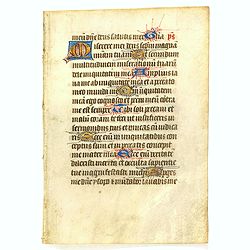 meū dñe deus salutis mee Gl̄ia ps̄
Miserere mei deus scdm magnā
miam tuam Et secundum
multitudinem miserationum tuarū
dele iniquitatem meā Amplius la
ua me ab iniquitate mea et a pecca
to meo munda me
meā ego cognosco et peccatū meū
me est semper Tibi soli peccaui et
malum coram te feci ut iustificeris in
sermonibus tuis et vincas cū iudica
ris Ecce enī in iniquitatibus con
ceptus sum et in peccatis concepit
me mater mea Ecce enī veritatē
dilexisti incerta et occulta sapientie
tue manifestasti michi Asperges
me dñe ysopo et mūdabor lauabis me